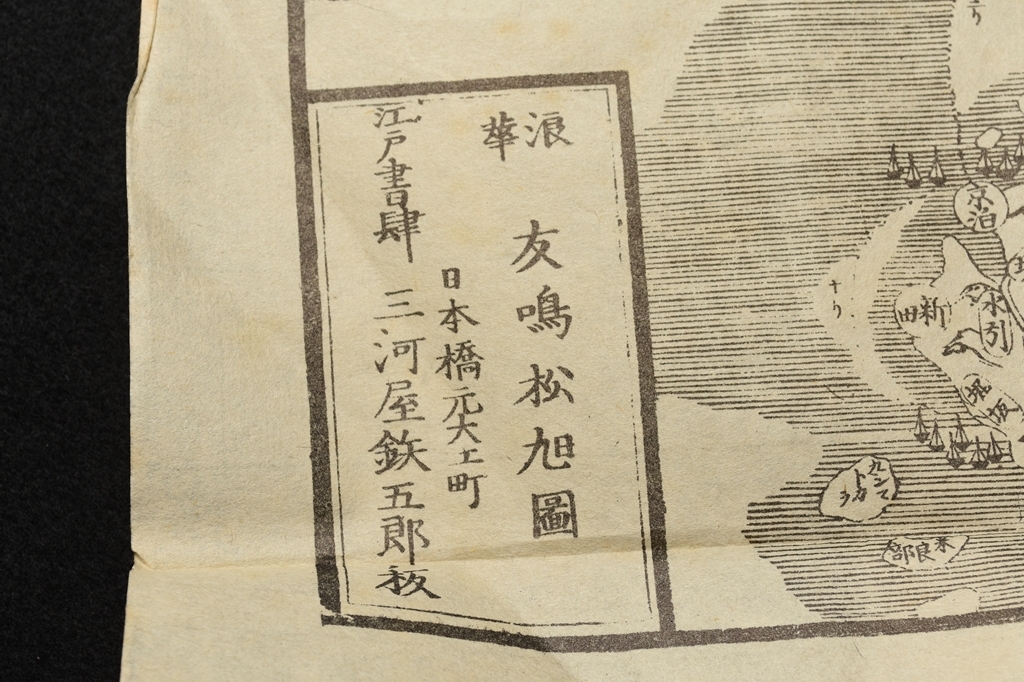 浪華
友鳴松旭圖
日本橋元大工町
江戸書肆
三河屋鉄五郎板
十り
京泊
新田
水引